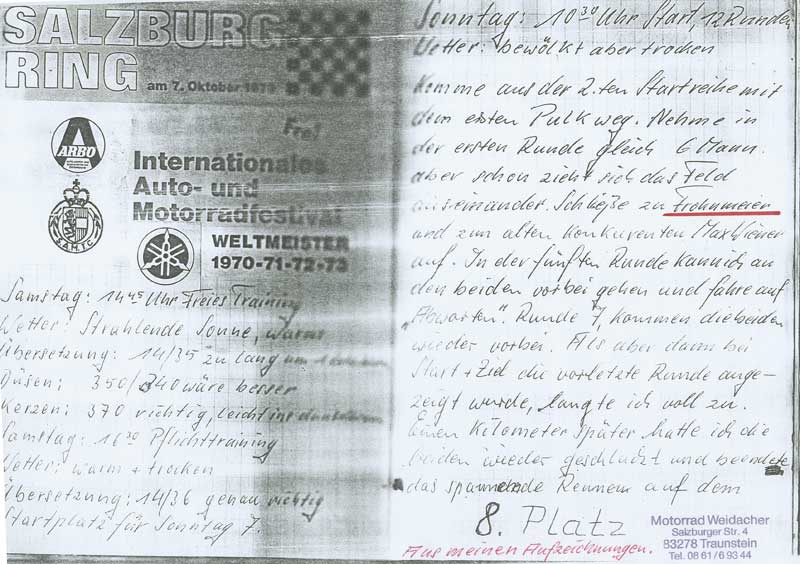 SALZBURG
RING am 7. Oktober
Frei
ARBÖ
Internationales
Auto- und
Motorradfestival
S.A.M.T.C.
WELTMEISTER
1970-71-72-73
Samstag: 14 45 Uhr Freies Training
Wetter: Strahlende Sonne, warm
Übersetzung: 14/35 zu lang um
Düsen: 350/340 wäre besser
Kerzen: 370 richtig, leicht ins
Samstag: 16 30 Pflichttraining
Wetter: warm + trocken
Übersetzung: 14/36 genau richtig
Startplatz für Sonntag 7.
Sonntag: 10 30 Uhr Start, 12 Runden
Wetter: bewölkt aber trocken
Komme aus der 2.ten Startreihe mit
dem ersten Pulk weg. Nehme in
der ersten Runde gleich 6 Mann.
aber schon zieht sich das Feld
auseinander. Schließe zu Frohnmeier
und zum alten Konkurenten Max Wiener
auf. In der fünften Runde kann ich an
den beiden vorbei gehen und fahre auf
„Abwarten". Runde 7, kommen die beiden
wieder vorbei. Als aber dann bei
Start + Ziel die vorletzte Runde ange-
zeigt wurde, langte ich voll zu.
Einen Kilometer später hatte ich die
beiden wieder geschluckt und beendete
das spannende Rennen auf dem
8. Platz
Aus meinen Aufzeichnungen.
Motorrad Weidacher
Salzburger Str. 4
83278 Traunstein
Tel. 08 61/6 93 44